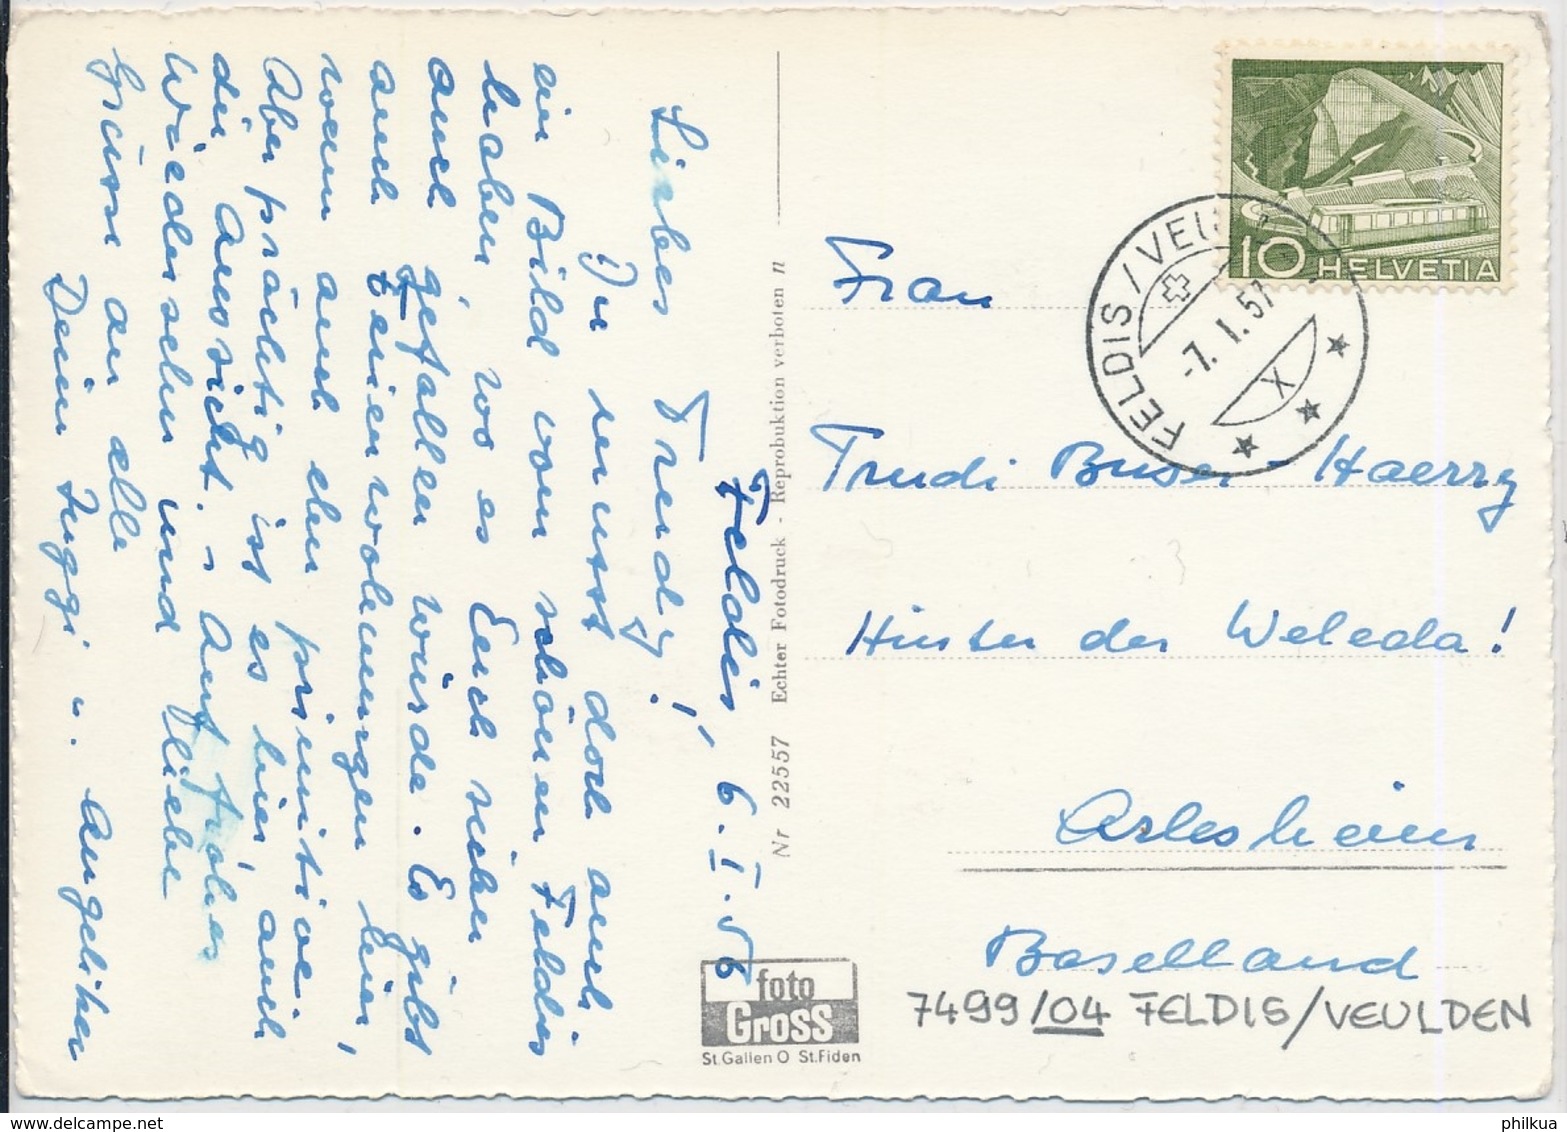 Feldis, 6. I. 56
Liebes Trudy!
Du musst doch auch
ein Bild vom schönen Feldis
haben, wo es Euch sicher
auch gefallen würde. Es gibt
auch Ferienwohnungen hier,
wenn auch eher primitive.
Aber prächtig ist es hier, auch
die Aussicht. - Auf frohes
Wiedersehen und liebe
Grüsse an alle
Dein Juggi u. Angeliken
Nr 22557 Echter Fotodruck - Reprobuktion verboten n
foto
GROSS
St.Gallen O St.Fiden
10 HELVETIA
FELDIS/VEU
-7. I. 57
X
Frau
Trudi Buser-Haerry
Hinter der Weleda!
Arlesheim
Baselland
7499/04 FELDIS/VEULDEN
www.delcampe.net
philkua